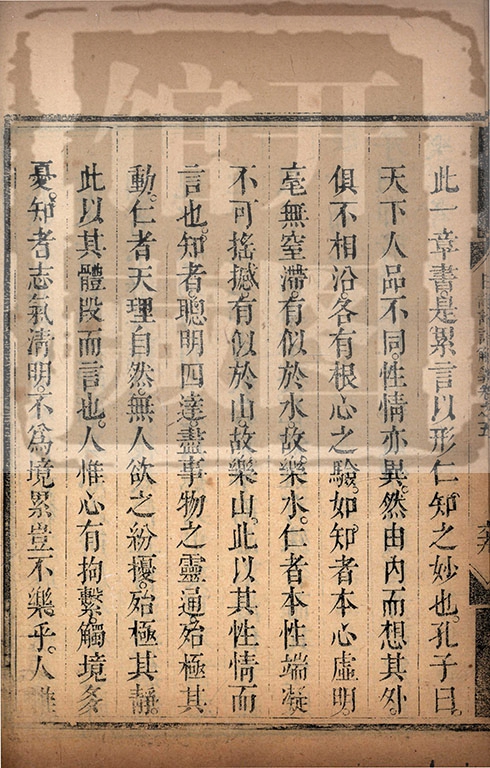 此一章書是累言以形仁知之妙也孔子曰
天下人品不同性情亦異然由内而想其外
俱不相沿各有根心之驗如知者本心虛明
毫無窒滯有似於水故樂水仁者本性端凝
不可搖撼有似於山故樂山此以其性情而
言也知者聰明四達盡事物之靈通殆極其
動仁者天理自然無人欲之紛擾殆極其靜
此以其體段而言也人惟心有拘繫觸境多
憂知者志氣清明不為境累豈不樂乎人惟